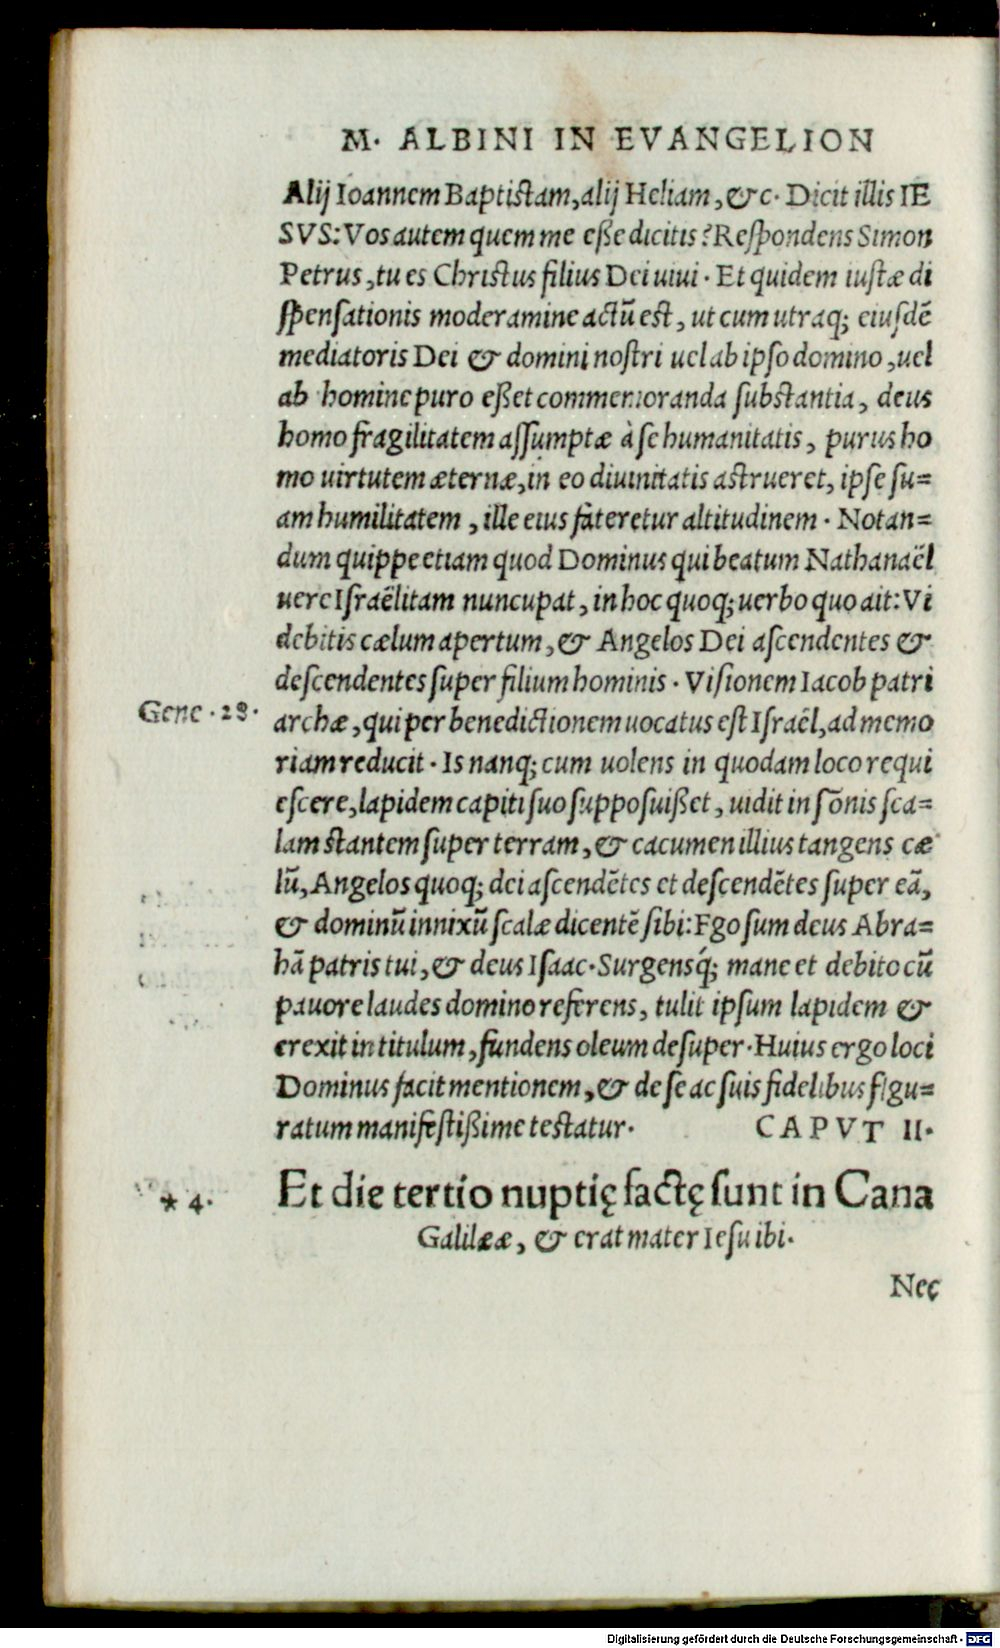 M. ALBINI IN EVANGELION
Alij Ioannem Baptistam, alij Heliam, &c. Dicit illis IE
SVS: Vos autem quem me eße dicitis? Respondens Simon
Petrus, tu es Christus filius Dei uiui. Et quidem iustæ di
spensationis moderamine actũ est, ut cum utraq; eiusdẽ
mediatoris Dei & domini nostri uel ab ipso domino, uel
ab homine puro eßet commemoranda substantia, deus
homo fragilitatem assumptæ à se humanitatis, purus ho
mo uirtutem æternæ, in eo diuinitatis astrueret, ipse su=
am humilitatem, ille eius fateretur altitudinem. Notan=
dum quippe etiam quod Dominus qui beatum Nathanaël
uere Israëlitam nuncupat, in hoc quoq; uerbo quo ait: Vi
debitis cælum apertum, & Angelos Dei ascendentes &
descendentes super filium hominis. Visionem Iacob patri
Gene. 28.
archæ, qui per benedictionem uocatus est Israël, ad memo
riam reducit. Is nanq; cum uolens in quodam loco requi
escere, lapidem capiti suo supposuißet, uidit in sõnis sca=
lam stantem super terram, & cacumen illius tangens cæ
lũ, Angelos quoq; dei ascendẽtes et descendẽtes super eã,
& dominũ innixũ scalæ dicentẽ sibi: Ego sum deus Abra=
hã patris tui, & deus Isaac. Surgensq́; mane et debito cũ
pauore laudes domino referens, tulit ipsum lapidem &
erexit in titulum, fundens oleum desuper. Huius ergo loci
Dominus facit mentionem, & de se ac suis fidelibus figu=
ratum manifestißime testatur. CAPVT II.
* 4.
Et die tertio nuptię factę sunt in Cana
Galilææ, & erat mater Iesu ibi.
Nec
Digitalisierung gefördert durch die Deutsche Forschungsgemeinschaft - DFG